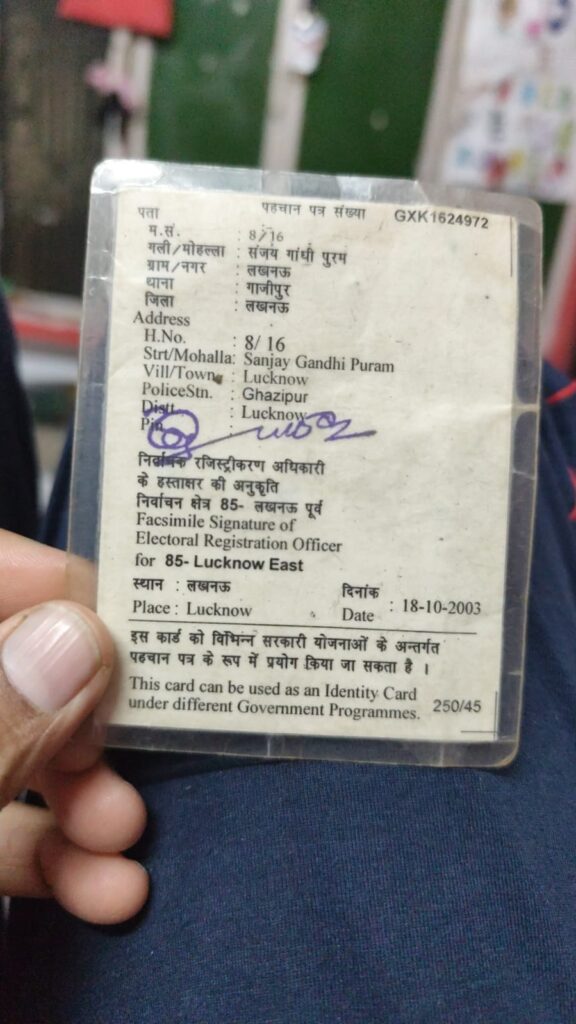 पता पहचान पत्र संख्या GXK1624972
म.सं. : 8/16
गली/मोहल्ला : संजय गांधी पुरम
ग्राम/नगर : लखनऊ
थाना : गाजीपुर
जिला : लखनऊ
Address
H.No. : 8/ 16
Strt/Mohalla: Sanjay Gandhi Puram
Vill/Town : Lucknow
PoliceStn. : Ghazipur
Distt. : Lucknow
Pin
निर्वाचक रजिस्ट्रीकरण अधिकारी
के हस्ताक्षर की अनुकृति
निर्वाचन क्षेत्र 85- लखनऊ पूर्व
Facsimile Signature of
Electoral Registration Officer
for 85- Lucknow East
स्थान : लखनऊ दिनांक
Place : Lucknow Date : 18-10-2003
इस कार्ड को विभिन्न सरकारी योजनाओं के अन्तर्गत
पहचान पत्र के रूप में प्रयोग किया जा सकता है ।
This card can be used as an Identity Card
under different Government Programmes. 250/45